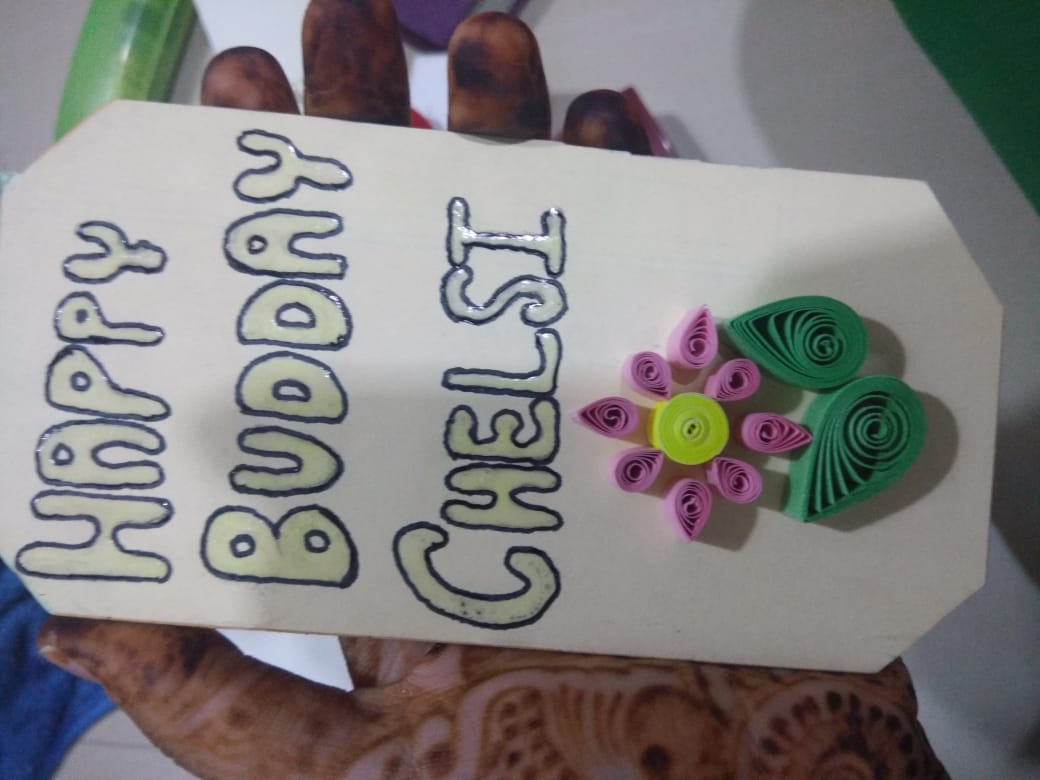 HAPPY
BUDDAY
CHELSI